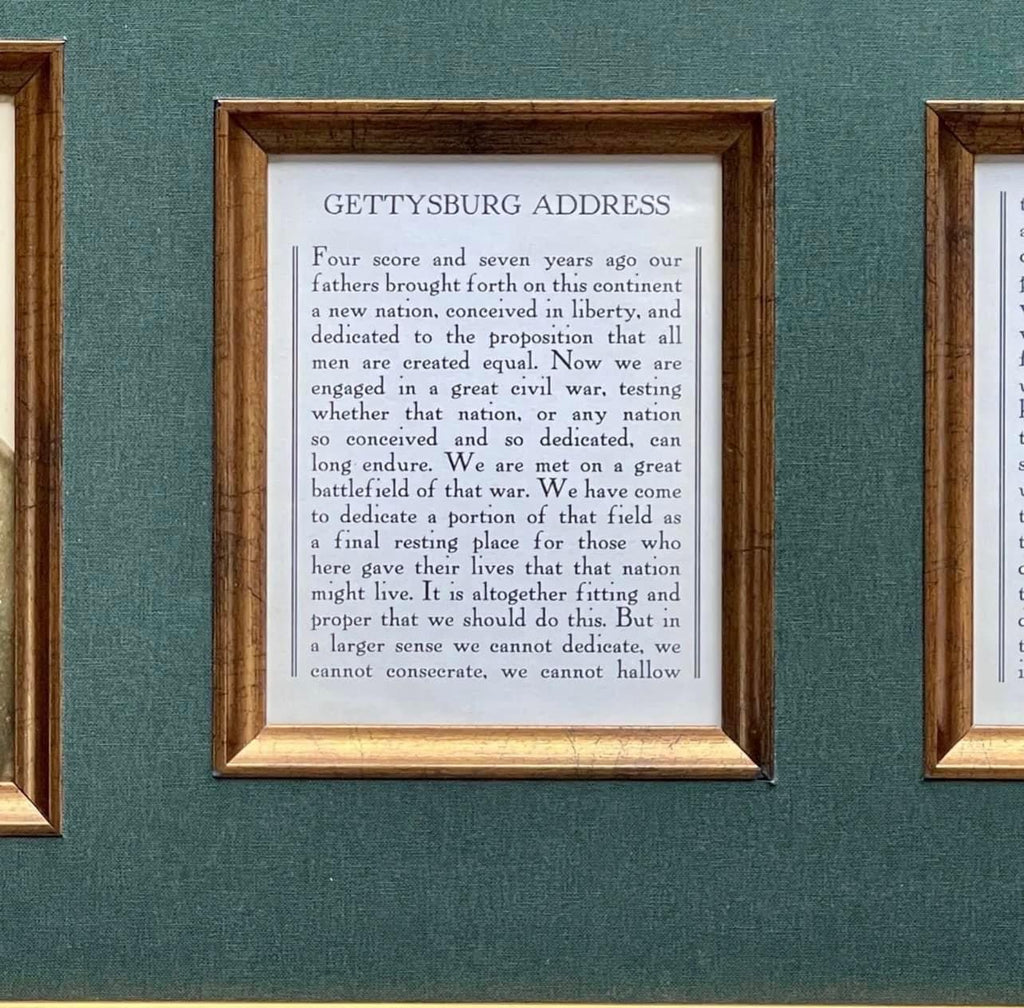 GETTYSBURG ADDRESS
Four score and seven years ago our
fathers brought forth on this continent
a new nation, conceived in liberty, and
dedicated to the proposition that all
men are created equal. Now we are
engaged in a great civil war, testing
whether that nation, or any nation
so conceived and so dedicated, can
long endure. We are met on a great
battlefield of that war. We have come
to dedicate a portion of that field as
a final resting place for those who
here gave their lives that that nation
might live. It is altogether fitting and
proper that we should do this. But in
a larger sense we cannot dedicate, we
cannot consecrate, we cannot hallow